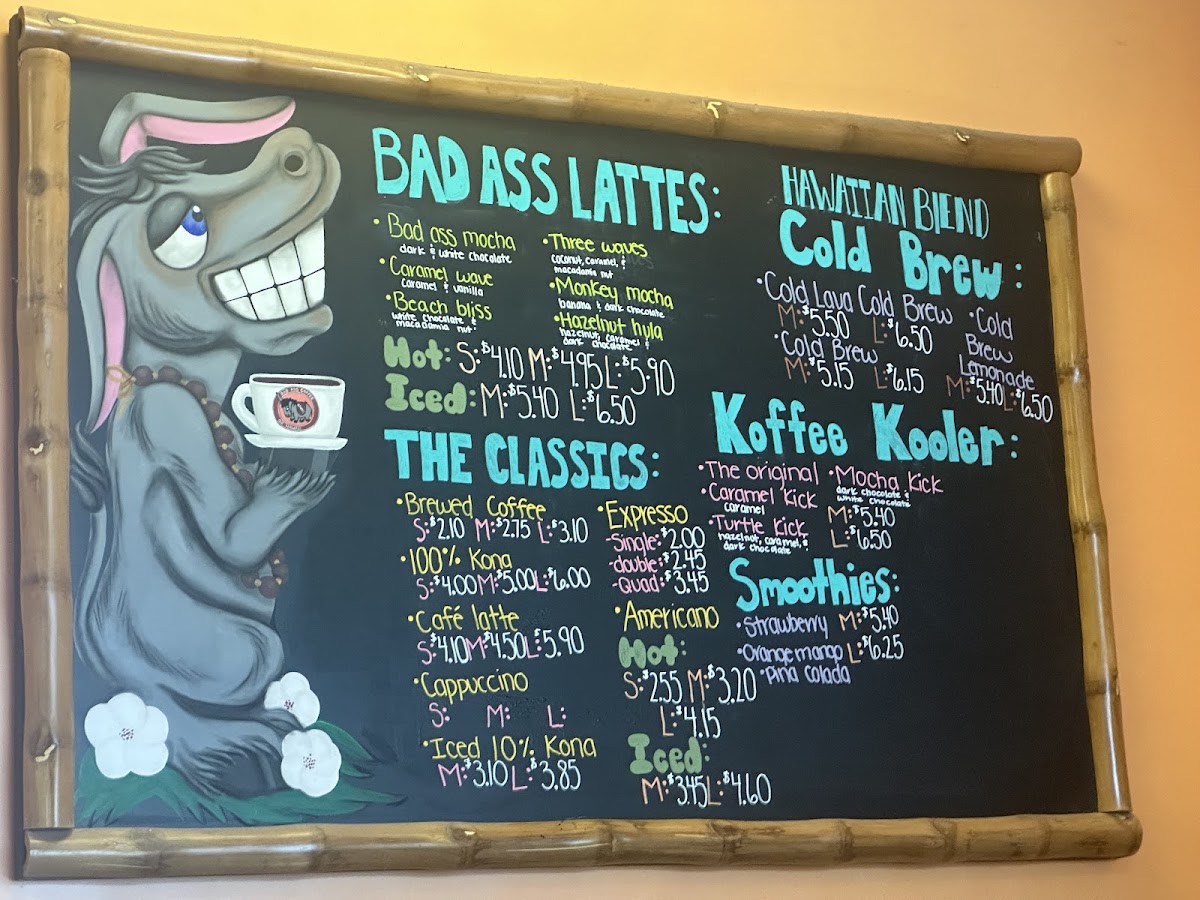 BAD ASS LATTES:
• Bad ass mocha
dark & white chocolate
• Caramel wave
caramel & vanilla
• Beach bliss
white chocolate &
macadamia nut
• Three waves
coconut, caramel, &
macadamia nut
• Monkey mocha
banana & dark chocolate
• Hazelnut hula
hazelnut, caramel &
dark chocolate
Hot: S:$4.10 M:$4.95 L:$5.90
Iced: M:$5.40 L:$6.50
THE CLASSICS:
• Brewed Coffee
S:$2.10 M:$2.75 L:$3.10
• 100% Kona
S:$4.00 M:$5.00 L:$6.00
• Café latte
S:$4.10 M:$4.50 L:$5.90
• Cappuccino
S: M: L:
• Iced 10% Kona
M:$3.10 L:$3.85
• Expresso
-Single:$2.00
-double:$2.45
-Quad:$3.45
• Americano
Hot:
S:$2.55 M:$3.20
L:$4.15
Iced:
M:$3.45 L:$4.60
HAWAIIAN BLEND
Cold Brew:
• Cold Lava Cold Brew
M:$5.50 L:$6.50
• Cold Brew
M:$5.15 L:$6.15
• Cold
Brew
Lemonade
M:$5.40 L:$6.50
Koffee Kooler:
• The original
• Caramel Kick
caramel
• Turtle Kick
hazelnut, caramel, &
dark chocolate
• Mocha Kick
dark chocolate &
white chocolate
M:$5.40
L:$6.50
Smoothies:
• Strawberry M:$5.40
• Orange mango L:$6.25
• Pina Colada